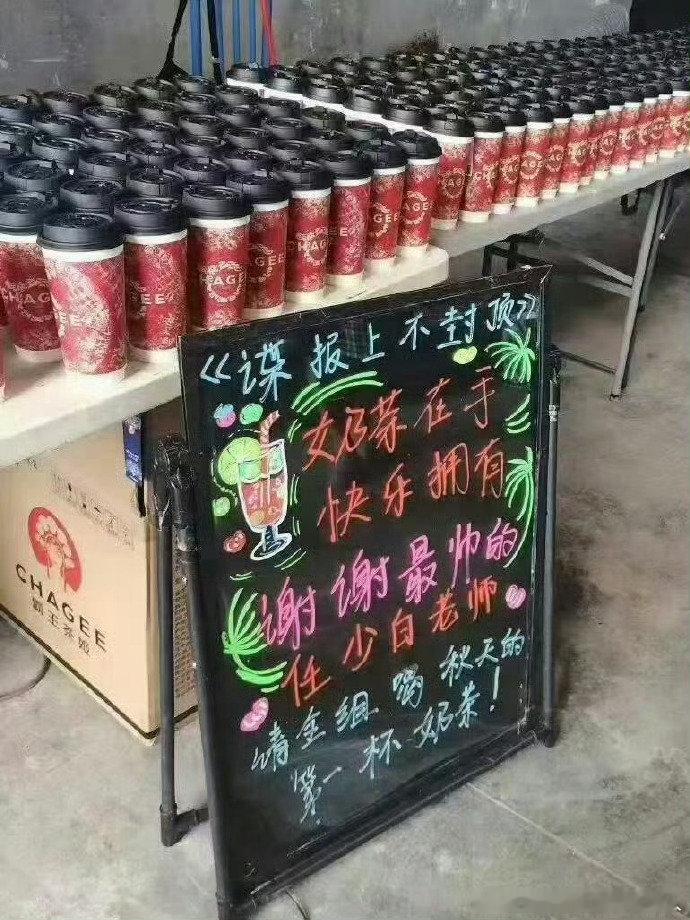 《谍报上不封顶》
奶茶在手
快乐拥有
谢谢最帅的
任少白老师
请全组喝秋天的
第一杯奶茶！
CHAGEE
霸王茶姬
CHAGEE
CHAGEE
CHAGEE
CHAGEE
CHAGEE